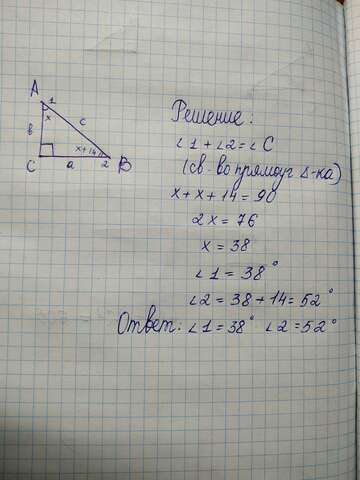 A
1
x
в
c
x+14
C
a
2
B
Решение:
∠1+∠2=∠C
(св. во прямоуг Δ-ка)
x+x+14=90
2x=76
x=38
∠1=38°
∠2=38+14=52°
Ответ: ∠1=38° ∠2=52°